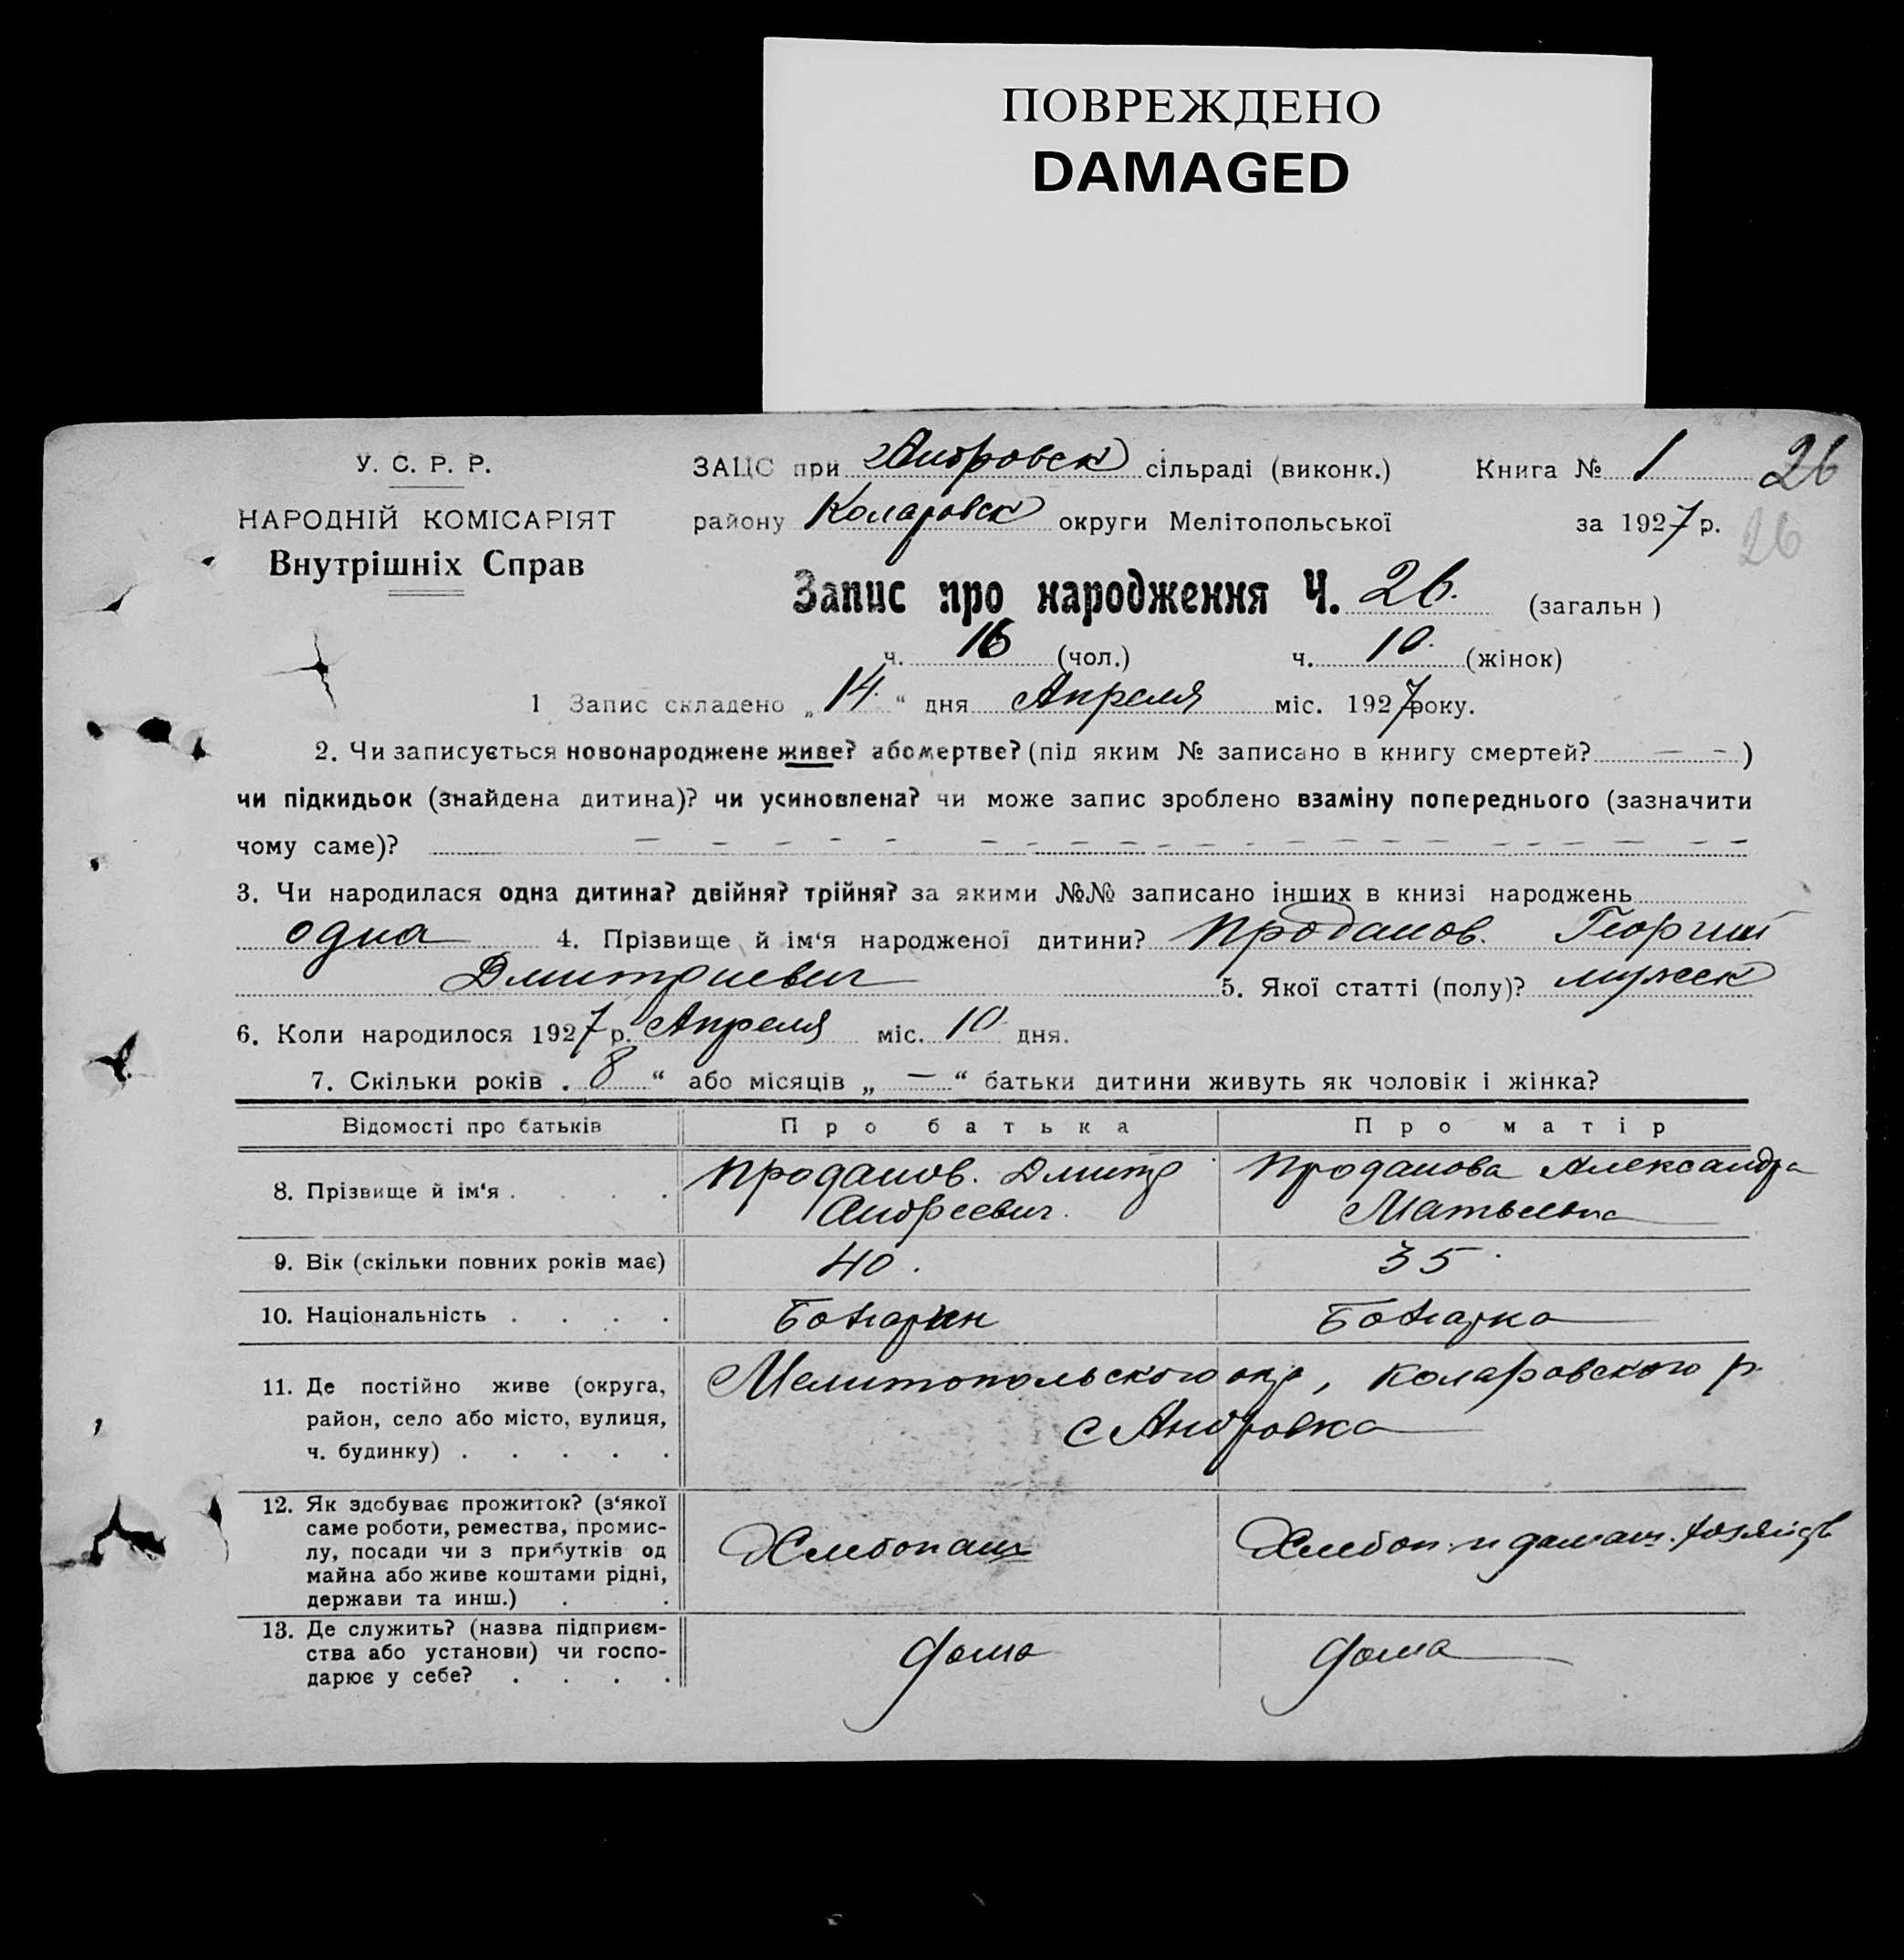 ПОВРЕЖДЕНО
DAMAGED
У. С. Р. Р.
НАРОДНІЙ КОМІСАРІЯТ
Внутрішніх Справ
ЗАЦС при Андровск сільраді (виконк.) Книга № 1 26
району Коларовск округи Мелітопольської за 1927 р. 26
Запис про народження Ч. 26. (загальн )
ч. 16 (чол.) ч. 10. (жінок)
1 Запис складено „ 14. “ дня Апреля міс. 1927 року.
2. Чи записується новонароджене живе? або мертве? (під яким № записано в книгу смертей? — – )
чи підкидьок (знайдена дитина)? чи усиновлена? чи може запис зроблено взаміну попереднього (зазначити
чому саме)? — – – – – – – – – – – – – – – – – – – –
3. Чи народилася одна дитина? двійня? трійня? за якими №№ записано інших в книзі народжень
одна 4. Прізвище й ім‘я народженої дитини? Проданов. Георгий
Дмитриевич 5. Якої статті (полу)? мужск
6. Коли народилося 1927 р. Апреля міс. 10 дня.
7. Скільки років „ 8 “ або місяців „ — “ батьки дитини живуть як чоловік і жінка?
Відомості про батьків Про батька Про матір
8. Прізвище й ім‘я . . . . Проданов. Дмитр Проданова Александра
Андреевич. Матвеевна
9. Вік (скільки повних років має) 40. 35.
10. Національність . . . . Болгарин Болгарка
11. Де постійно живе (округа, Мелитопольского окр, Коларовского р.
район, село або місто, вулиця, с Андровка
ч. будинку) . . . . .
12. Як здобуває прожиток? (з‘якої
саме роботи, ремества, промис-
лу, посади чи з прибутків од Хлебопаш Хлебоп. и домаш. хозяйств
майна або живе коштами рідні,
держави та инш.) . .
13. Де служить? (назва підприєм-
ства або установи) чи госпо- дома дома
дарює у себе? . . . .